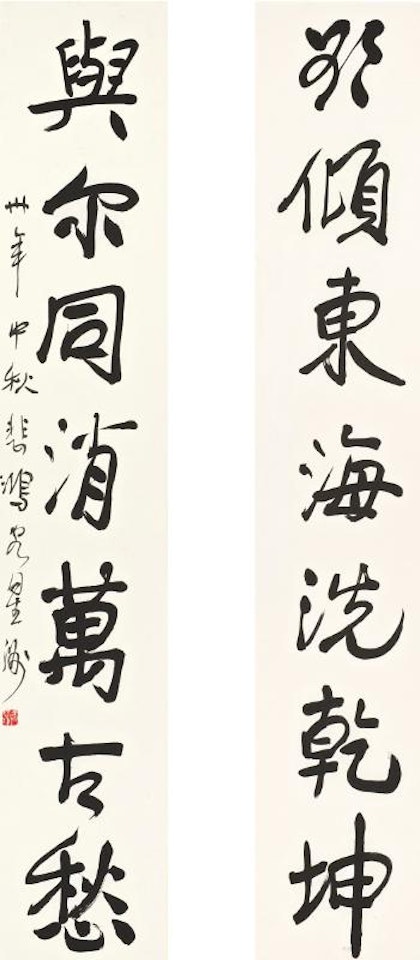 欲傾東海洗乾坤
與尔同消萬古愁
卅年中秋悲鴻客星洲